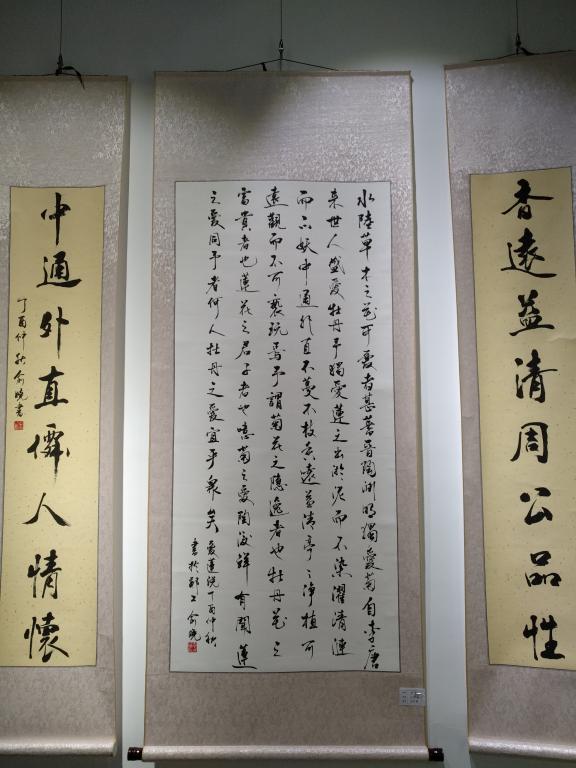 香遠益清周公品性
水陸草木之花可愛者甚蕃晉陶淵明獨愛菊自李唐
来世人盛愛牡丹予獨愛蓮之出淤泥而不染濯清漣
而不妖中通外直不蔓不枝香遠益清亭〻净植可
遠觀而不可褻玩焉予謂菊花之隱逸者也牡丹花之
富貴者也蓮花之君子者也噫菊之愛陶後鮮有聞蓮
之愛同予者何人牡丹之愛宜乎衆矣
愛蓮說丁酉仲秋
書於上俞曉
中通外直人情懷
丁酉仲秋俞曉書